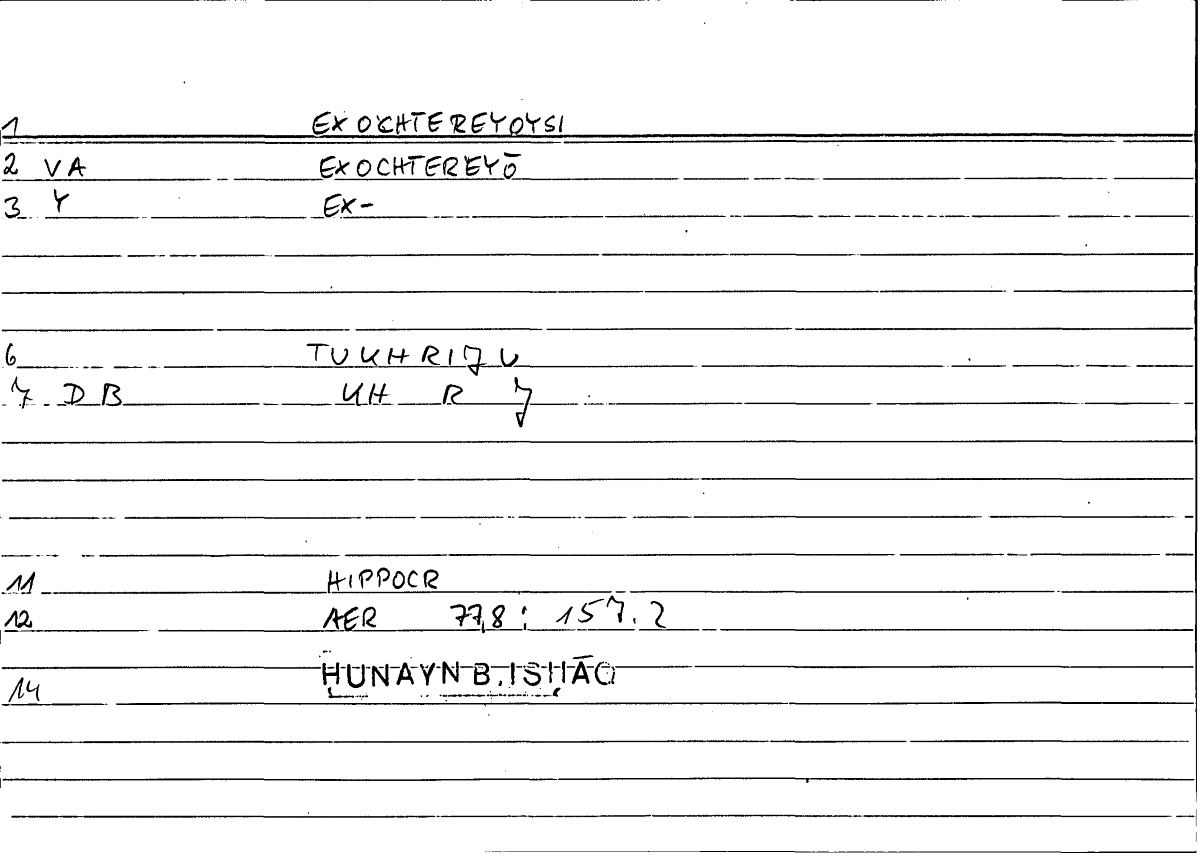 1 EXOCHTEREYOYSI
2 VA EXOCHTEREYŌ
3 Y EX-
6 TUKHRIǦU
7 DB KH R Ǧ
11 HIPPOCR
12 AER 77,8 : 157.2
14 ḤUNAYN B. ISḤĀQ